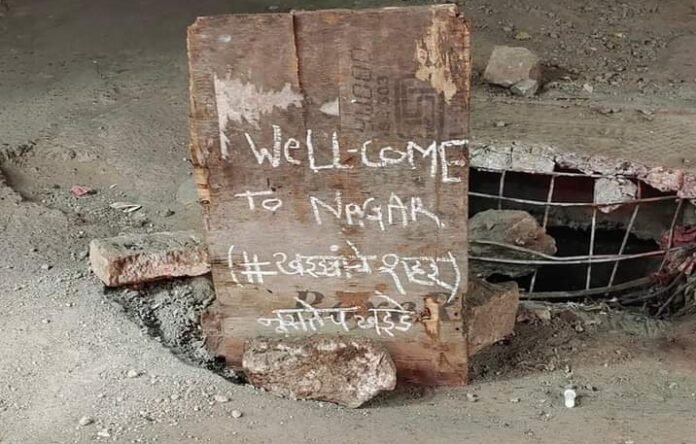 WeLL-COME
TO NAGAR
(#खड्ड्यांचे शहर)
नुसतेच खड्डे